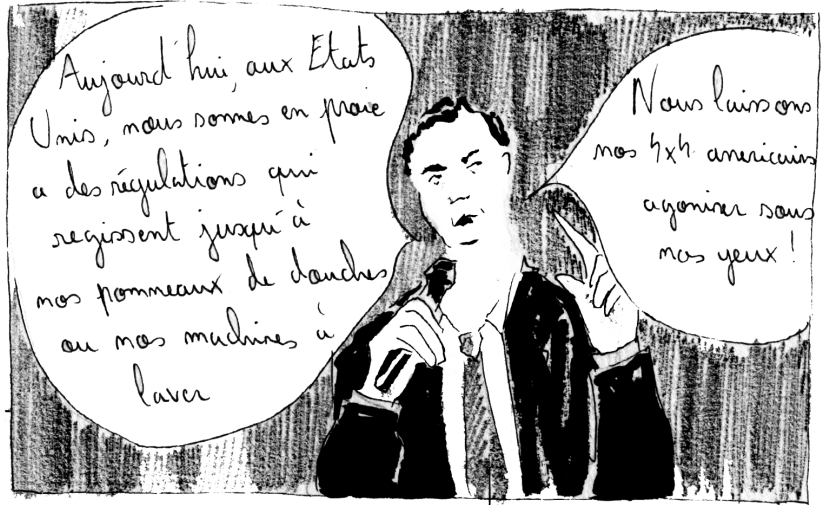 Aujourd'hui, aux Etats
Unis, nous sommes en proie
a des régulations qui
regissent jusqu'à
nos pommeaux de douches
ou nos machines à
laver
Nous laissons
nos 4x4 americains
agoniser sous
nos yeux !